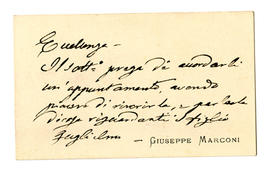 Eccellenza –
Il sott.º prega di accordarli
un'appuntamento, avendo
piacere di riverirla, e parlarle
di cose riguardanti i figli
– GIUSEPPE MARCONI